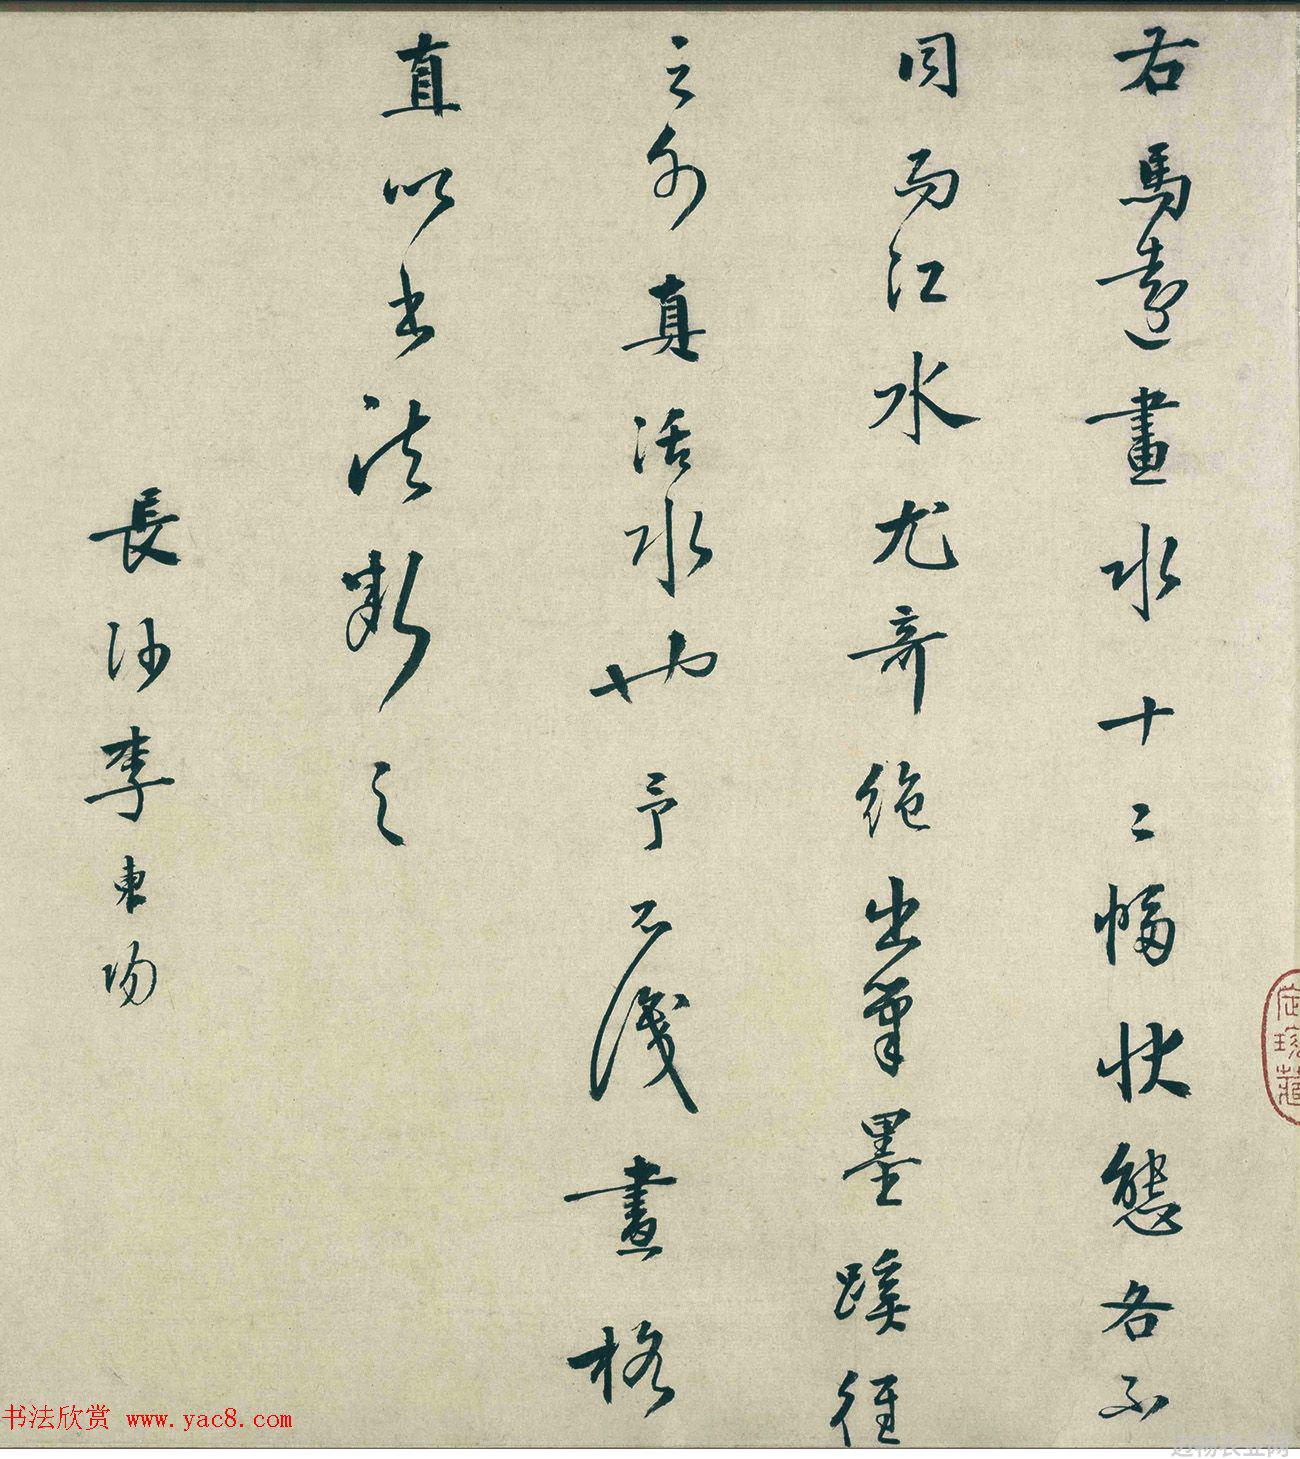 右馬遠畫水十二幅狀態各不
同而江水尤奇絶出筆墨蹊徑
之外真活水也予不識畫格
直以書法斷之
長沙李東陽
珎藏
书法欣赏 www.yac8.com